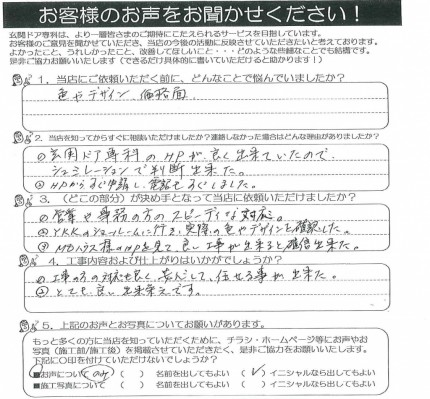 お客様のお声をお聞かせください！
玄関ドア専科は、より一層皆さまのご期待にこたえられるサービスを目指しています。
お客様のご意見を聞かせていただき、当店の今後の活動に反映させていただきたいと考えております。
よかったこと、うれしかったこと、改善してほしいこと・・・どのような些細なことでも結構です。
是非ご協力お願いいたします（できるだけ具体的に書いていただけると助かります！）
１．当店にご依頼いただく前に、どんなことで悩んでいましたか？
色やデザイン、価格面
２．当店を知ってからすぐに相談いただけましたか？連絡しなかった場合はどんな理由がありましたか？
①玄関ドア専科のHPが良く出来ていたので、
シュミレーションで判断出来た。
②HPからすぐ申請し、電話もすぐしました。
３．（どこの部分）が決め手となって当店に依頼いただけましたか？
①営業や専務の方のスピーディな対応。
②YKKのショールームに行き、実際の色やデザインを確認した。
③HPハウス様のHPを見て、良い工事が出来ると確信出来た。
４．工事内容および仕上がりはいかがでしょうか？
①工事の方の対応も良く、安心して、任せる事が出来た。
②とても良い出来栄えです。
５．上記のお声とお写真についてお願いがあります。
もっと多くの方に当店を知っていただくために、チラシ・ホームページ等にお声やお
写真（施工前/施工後）を掲載させていただきたく、是非ご協力をお願いいたします。
下記に○印を付けていただけないでしょうか？
■お声について のみ （ ）名前を出してもよい （✓）イニシャルなら出してもよい
■施工写真について （ ）名前を出してもよい （ ）イニシャルなら出してもよい